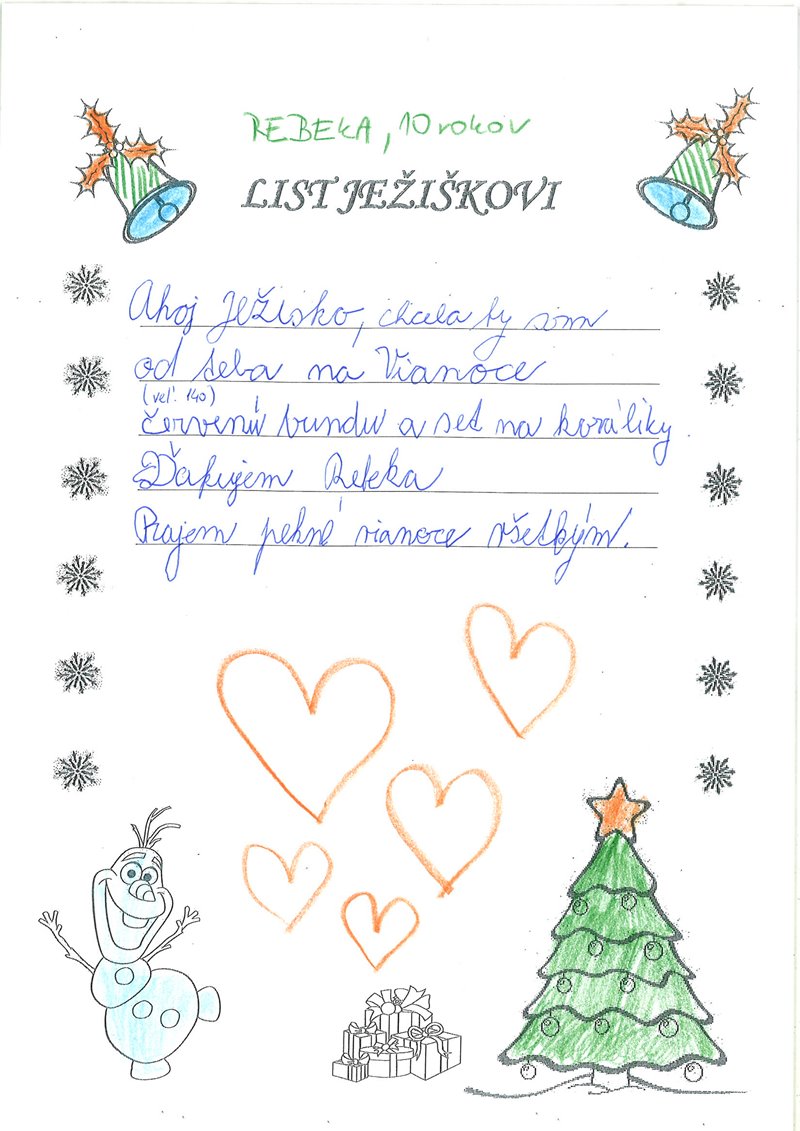 REBEKA, 10 rokov
LIST JEŽIŠKOVI
Ahoj Ježisko, chcela by som
od teba na Vianoce
(veľ. 140)
červenú bundu a set na koráliky
Ďakujem Rebeka
Prajem pekné vianoce všetkým.